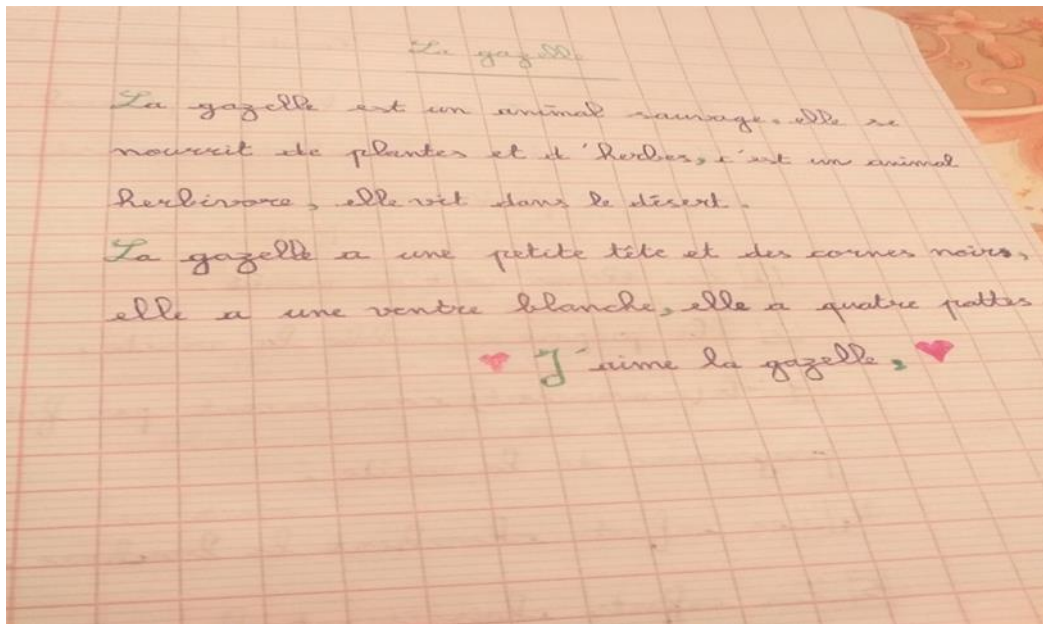 La gazelle
La gazelle est un animal sauvage. elle se
nourrit de plantes et d'herbes, c'est un animal
herbivore, elle vit dans le désert.
La gazelle a une petite tête et des cornes noirs,
elle a une ventre blanche, elle a quatre pattes
J'aime la gazelle,